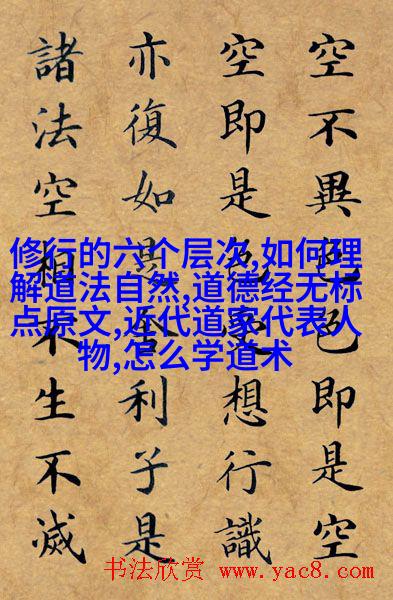 空不異色色即是空
空即是色受想行識
亦復如是舍利子是
諸法空相不生不滅
修行的六个层次,如何理
解道法自然,道德经无标
点原文,近代道家代表人
物,怎么学道术
书法欣赏 www.yac8.com